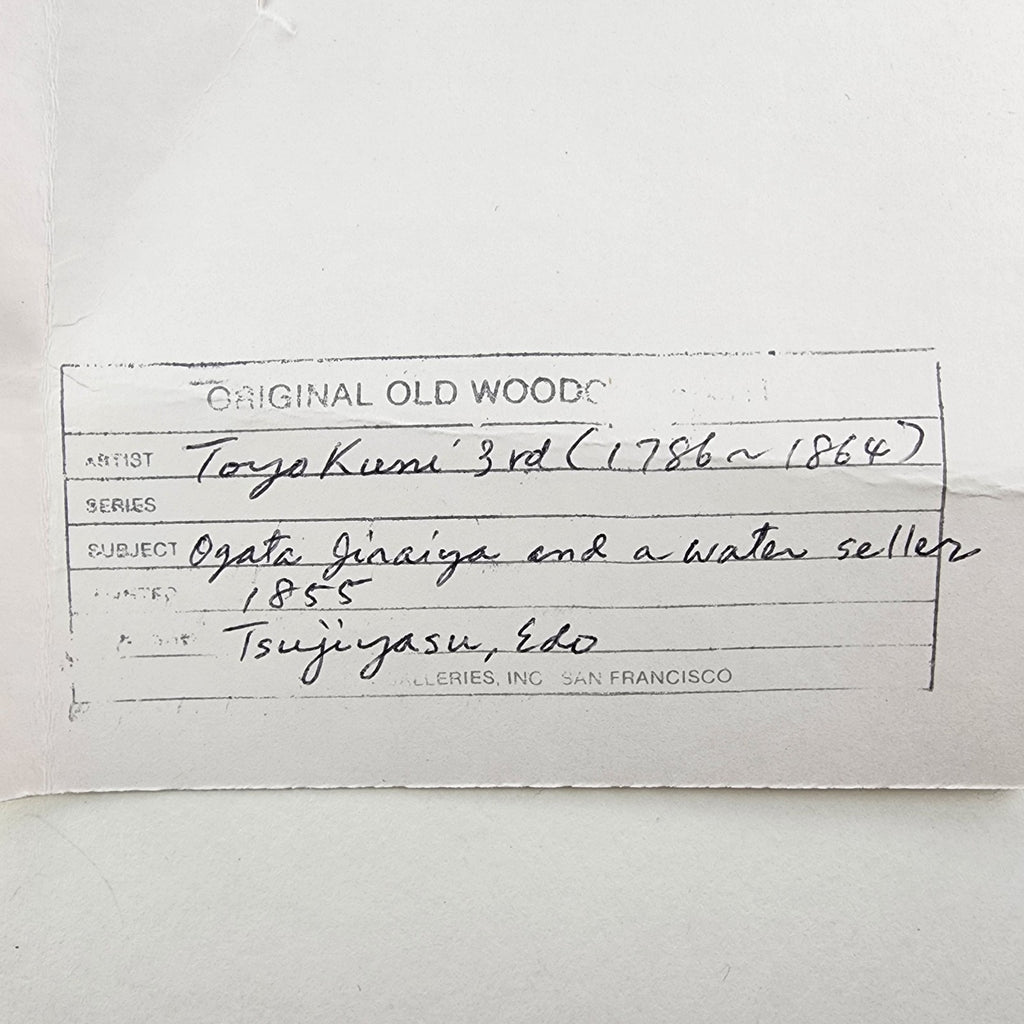 ORIGINAL OLD
ARTIST Toyokuni 3rd (1786~1864)
SERIES
SUBJECT Ogata Jiraiya and a water seller
1855
Tsujiyasu, Edo
GALLERIES, INC SAN FRANCISCO